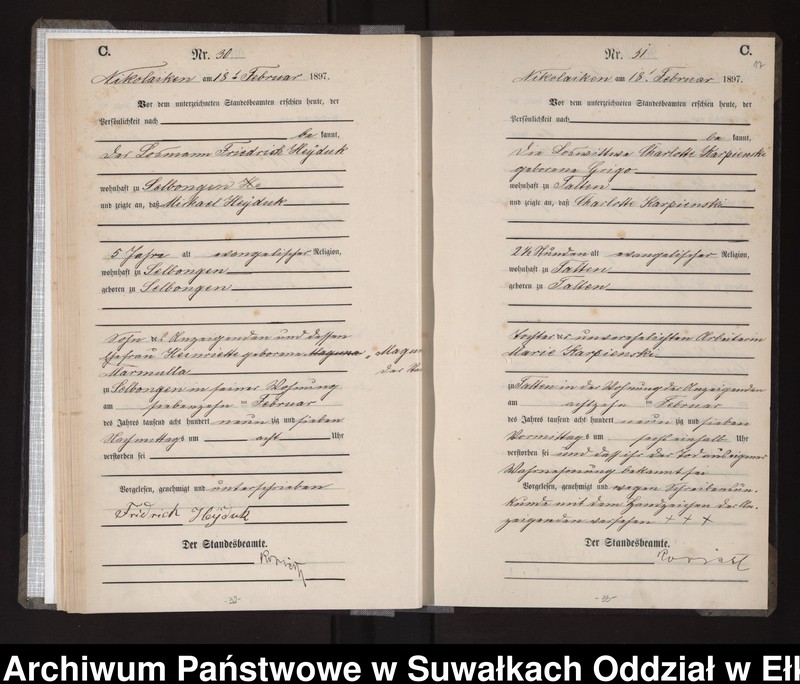 C.
Nr. 30
Nikolaiken am 18ten Februar 1897.
Vor dem unterzeichneten Standesbeamten erschien heute, der
Persönlichkeit nach
be kannt,
der Losmann Friedrich Heÿduk
wohnhaft zu Selbongen
und zeigte an, daß Mikael Heÿduk
5 Jahre alt evangelischer Religion,
wohnhaft zu Selbongen
geboren zu Selbongen
Sohn des Anzeigenden und dessen
Ehefrau Henriette geborene
Marmulla
zu Selbongen in seiner Wohnung
am siebenzehn ten Februar
des Jahres tausend acht hundert neun zig und sieben
Nachmittags um acht Uhr
verstorben sei
Vorgelesen, genehmigt und unterschrieben
Fridrick Heÿduk
Der Standesbeamte.
-32-
C.
17
Nr. 31
Nikolaiken am 18ten Februar 1897.
Vor dem unterzeichneten Standesbeamten erschien heute, der
Persönlichkeit nach
be kannt,
die Loswittwe Charlotte Karpienski
geborene Grigo
wohnhaft zu Talten
und zeigte an, daß Charlotte Karpienski
2½ Stunden alt evangelischer Religion,
wohnhaft zu Talten
geboren zu Talten
Tochter der unverehelichten Arbeiterin
Marie Karpienski
zu Talten in der Wohnung der Anzeigenden
am achtzehn ten Februar
des Jahres tausend acht hundert neun zig und sieben
Vormittags um sechs einhalb Uhr
verstorben sei und daß ihr der Tod aus eigener
Wahrnehmung bekannt sei
Vorgelesen, genehmigt und wegen Schreibenun-
kunde mit dem Handzeichen der An-
zeigenden versehen + + +
Der Standesbeamte.
Archiwum Państwowe w Suwałkach Oddział w Ełk